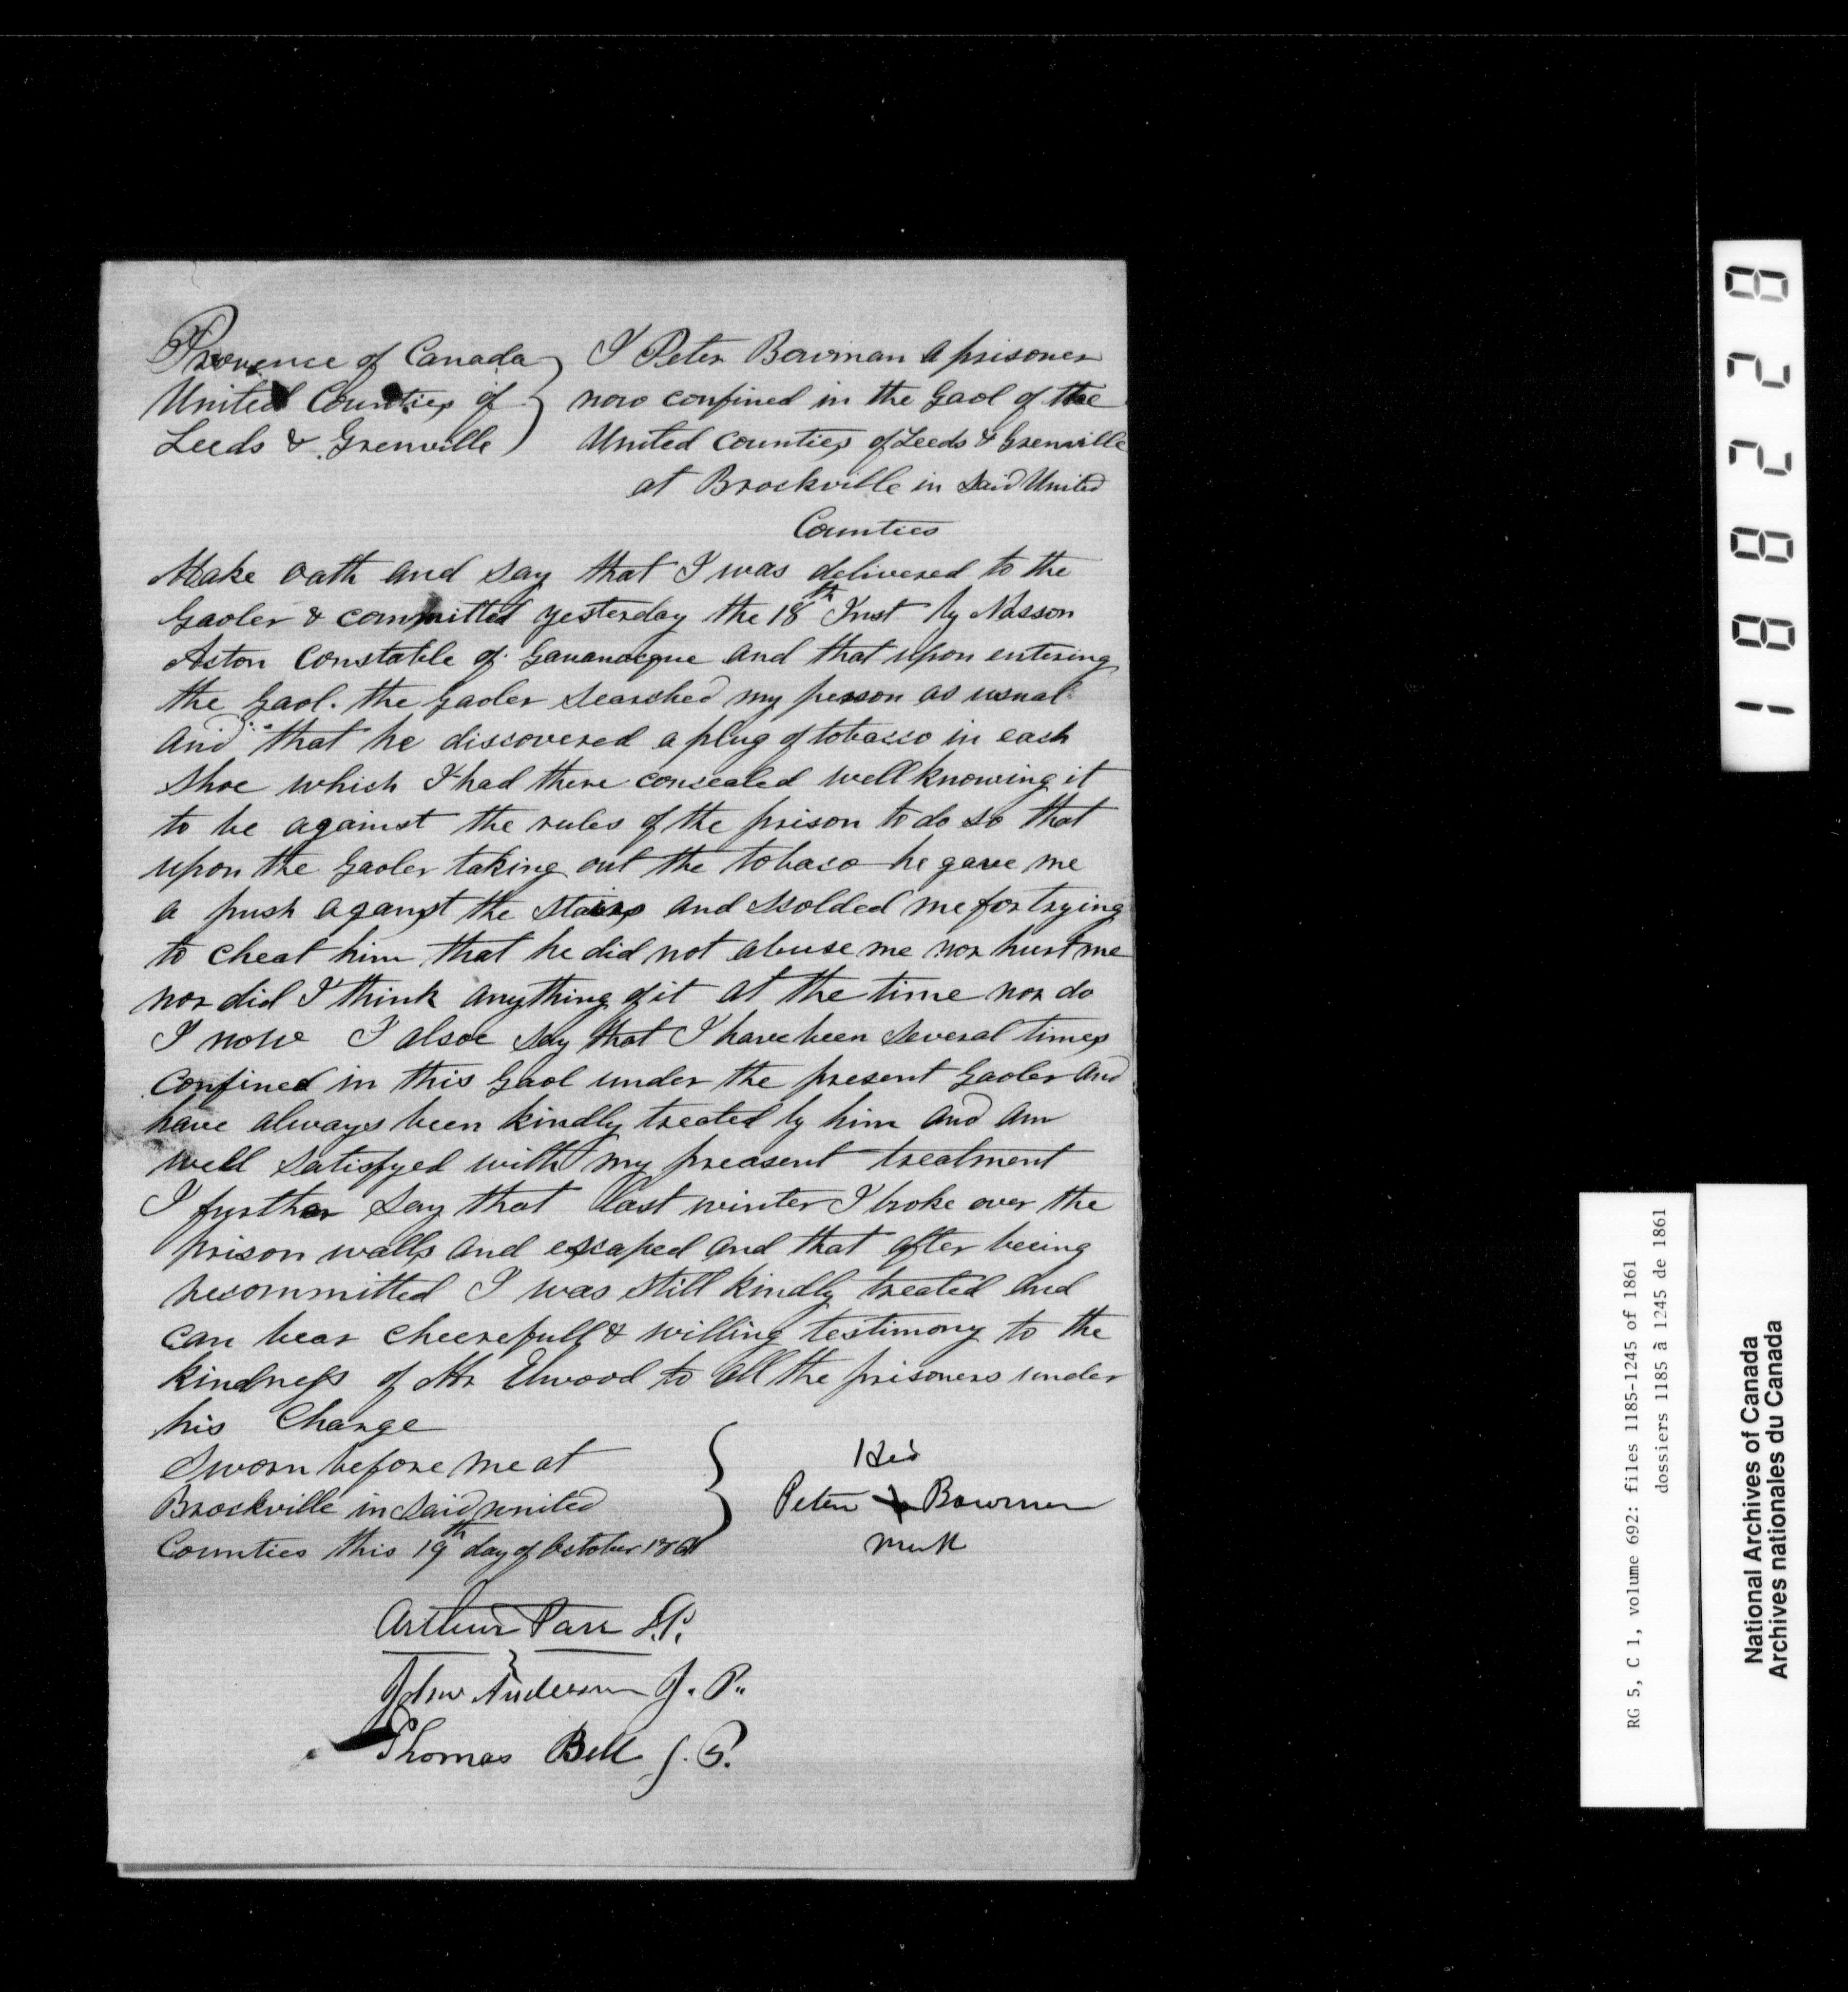 Provence of Canada
United Counties of
Leeds & Grenville
I Peter Bowman a prisoner
now confined in the Gaol of the
United Counties of Leeds & Grenville
at Brockville in Said United
Counties
Make oath and say that I was delivered to the
Gaoler & committed yesterday the 18th Inst by Nasson
Acton Constable of Gananocque and that upon entering
the Gaol. the Gaoler Searched my person as usual
and that he discovered a plug of tobacco in each
Shoe which I had there consealed well knowing it
to be against the rules of the prison to do so that
upon the Gaoler taking out the tobaco he gave me
a push aganst the stairs and scolded me for trying
to cheat him that he did not abuse me nor hurt me
nor did I think anything of it at the time nor do
I now I alsoe say that I have been Several times
Confined in this Gaol under the present Gaoler and
have always been kindly treated by him and am
well Satisfyed with my preasent treatment
I further Say that last winter I broke over the
prison walls and escaped and that after beeing
recommitted I was still kindly treated and
can bear cheerefull & willing testimony to the
kindness of Mr Elwood to all the prisoners under
his Charge
Sworn before me at
Brockville in Said united
Counties this 19th day of October 1861
His
Peter X Bowman
mark
Arthur Parr J.P.
John Anderson J. P.
Thomas Bell J. P.
188228
RG 5, C 1, volume 692: files 1185-1245 of 1861
dossiers 1185 à 1245 de 1861
National Archives of Canada
Archives nationales du Canada